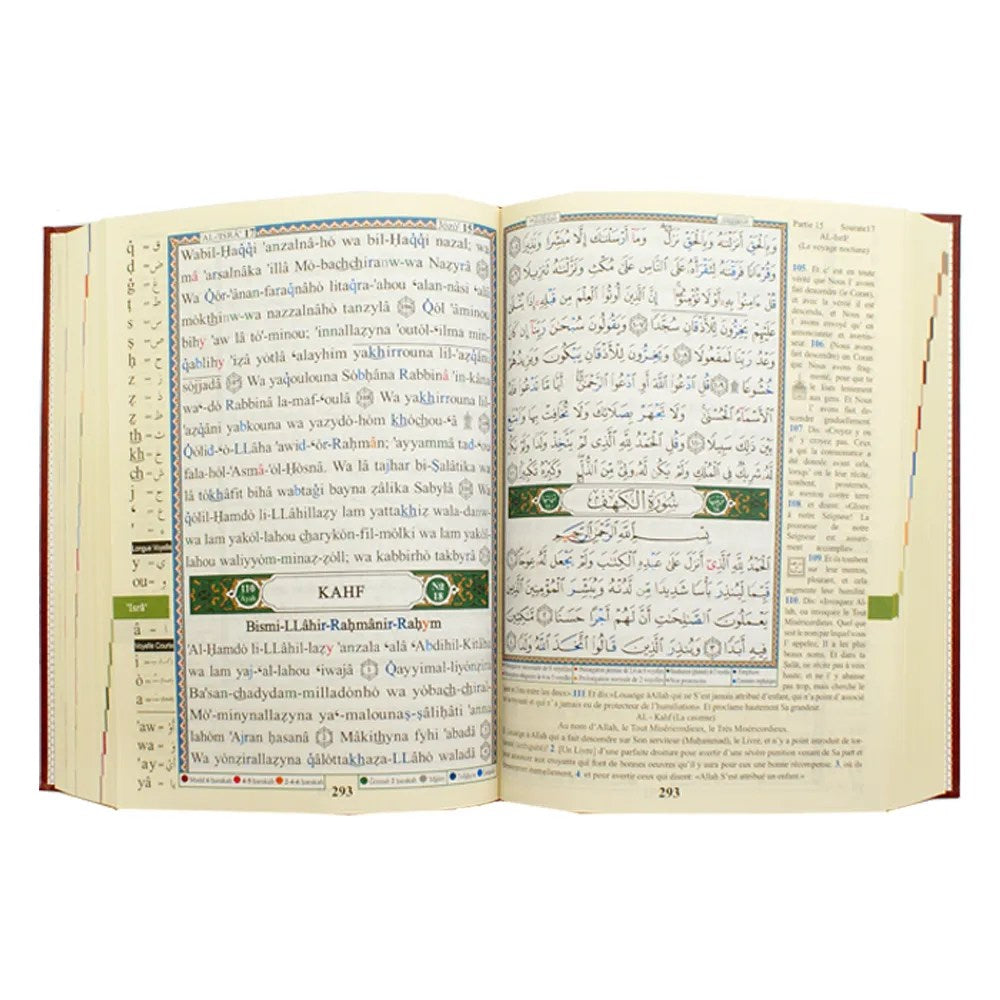 AL-'ISRA' 17 Joziř 15
Wabil-Ḥaq̇q̇i 'anzalnâ-hó wa bil-Ḥaq̇q̇i nazal; wa
mâ 'arsalnâka 'illâ Mó-bachchiranw-wa Nazyrâ
Wa Q̇ór-'ânan-faraq̇nâhó litaq̇ra-'ahou ʿalan-nâsi ʿalâ
mókthinw-wa nazzalnâho tanzylâ Q̇ól 'âminou
bihy 'aw lâ tó'-minou; 'innallazyna 'outól-ʿilma min-
q̇ablihy 'izâ yótlâ ʿalayhim yakhirrouna lil-'azq̇âni
sójjadâ Wa yaq̇oulouna Sóbḥâna Rabbinâ 'in-kâna
waʿ-dó Rabbina la-mafʿoulâ Wa yakhirrouna lil-
'azq̇âni yabkouna wa yazydó-hóm khóchouʿâ
Q̇ólid-ʿó-LLâha 'awid-ʿór-Raḥmân; 'ayyammâ tadʿou-
fala-hól-'Asmâ'ól-Ḥósnâ. Wa lâ tajhar bi-Ṣalâtika wa
lâ tókhâfit bihâ wabtaġi bayna zâlika Sabylâ Wa
q̇ólil-Ḥamdó li-LLâhillazy lam yattakhiz wala-danw-
wa lam yakól-lahou charykón-fil-mólki wa lam yakól-
lahou waliyyóm-minaz-zóll; wa kabbirhó takbyrâ
110 Ayah KAHF No 18
Bismi-LLâhir-Raḥmânir-Raḥym
'Al-Ḥamdó li-LLâhil-lazy 'anzala ʿalâ ʿAbdihil-Kitâba
wa lam yajʿal-lahou ʿiwajâ Q̇ayyimal-liyónzira
Ba'san-chadydam-milladónhó wa yóbach-chiral-
Mó'-minynallazyna yaʿ-malounaṣ-ṣâliḥâti 'anna
lahóm 'Ajran ḥasanâ Mâkithyna fyhi 'abadâ
Wa yónzirallazyna q̇âlóttakhaza-LLâhó waladâ
293
q̇ - ق
ḍ - ض
ġ - غ
ṭ - ط
ṣ - ص
ḥ - ح
z - ز
z - ذ
th - ث
kh - خ
ch - ش
Longue Voyelle
y -
ou - و
'Isrâ'
â -
Voyelle Courte
i -
ó -
a -
'aw -
wa -
'ay -
yâ -
وَبِالْحَقِّ أَنزَلْنَاهُ وَبِالْحَقِّ نَزَلَ وَمَا أَرْسَلْنَاكَ إِلَّا مُبَشِّرًا وَنَذِيرًا
وَقُرْءَانًا فَرَقْنَاهُ لِتَقْرَأَهُ عَلَى النَّاسِ عَلَى مُكْثٍ وَنَزَّلْنَاهُ تَنزِيلًا
قُلْ ءَامِنُوا بِهِ أَوْ لَا تُؤْمِنُوا إِنَّ الَّذِينَ أُوتُوا الْعِلْمَ مِن قَبْلِهِ إِذَا يُتْلَى
عَلَيْهِمْ يَخِرُّونَ لِلْأَذْقَانِ سُجَّدًا وَيَقُولُونَ سُبْحَانَ رَبِّنَا إِن كَانَ
وَعْدُ رَبِّنَا لَمَفْعُولًا وَيَخِرُّونَ لِلْأَذْقَانِ يَبْكُونَ وَيَزِيدُهُمْ
خُشُوعًا ۩ قُلِ ادْعُوا اللَّهَ أَوِ ادْعُوا الرَّحْمَنَ أَيًّا مَّا تَدْعُوا فَلَهُ
الْأَسْمَاءُ الْحُسْنَى وَلَا تَجْهَرْ بِصَلَاتِكَ وَلَا تُخَافِتْ بِهَا وَابْتَغِ
بَيْنَ ذَلِكَ سَبِيلًا وَقُلِ الْحَمْدُ لِلَّهِ الَّذِي لَمْ يَتَّخِذْ وَلَدًا وَلَمْ يَكُن لَّهُ
شَرِيكٌ فِي الْمُلْكِ وَلَمْ يَكُن لَّهُ وَلِيٌّ مِّنَ الذُّلِّ وَكَبِّرْهُ تَكْبِيرًا
سُورَةُ الْكَهْفِ
بِسْمِ اللَّهِ الرَّحْمَنِ الرَّحِيمِ
الْحَمْدُ لِلَّهِ الَّذِي أَنزَلَ عَلَى عَبْدِهِ الْكِتَابَ وَلَمْ يَجْعَل لَّهُ عِوَجًا
قَيِّمًا لِّيُنذِرَ بَأْسًا شَدِيدًا مِّن لَّدُنْهُ وَيُبَشِّرَ الْمُؤْمِنِينَ الَّذِينَ
يَعْمَلُونَ الصَّالِحَاتِ أَنَّ لَهُمْ أَجْرًا حَسَنًا مَّاكِثِينَ
فِيهِ أَبَدًا وَيُنذِرَ الَّذِينَ قَالُوا اتَّخَذَ اللَّهُ وَلَدًا
Partie 15 Sourate17
AL-Isrâ'
(Le voyage nocturne)
105. Et c'est en toute
vérité que Nous l' avons
fait descendre (le Coran)
et avec la vérité il est
descendu, et Nous ne
t' avons envoyé qu' en
annonciateur et avertis-
seur. 106. (Nous avons
fait descendre) un Coran
que Nous avons frag-
menté, pour que tu
le lises lentement
aux gens. Et Nous
l' avons fait descendre
graduellement.
107. Dis: «Croyez y ou
n' y croyez pas. Ceux
à qui la connaissance a
été donnée avant cela,
lorsqu' on le leur récite,
tombent, prosternés,
le menton contre terre
108. et disent: «Gloire
à notre Seigneur! La
promesse de notre
Seigneur est assuré-
ment accomplie».
109. Et ils tombent
sur leur menton,
pleurant, et cela
augmente leur humilité.
110. Dis: «Invoquez Al-
lah, ou invoquez le Tout
Miséricordieux. Quel que
soit le nom par lequel vous
l' appelez, Il a les plus
beaux noms. Et dans ta
Salât, ne récite pas à voix
haute; et ne l'y abaisse
pas trop, mais cherche le
juste milieu entre les deux» 111 Et dis: «Louange à Allah qui ne S'est jamais attribué d'enfant, qui n'a point d'associé
et qui n'a jamais eu de protecteur de l'humiliation». Et proclame hautement Sa grandeur.
AL - Kahf (La caverne)
Au nom d'Allah, le Tout Miséricordieux, le Très Miséricordieux.
Louange à Allah qui a fait descendre sur Son serviteur (Muhammad), le Livre, et n'y a point introduit de tor-
tuosité (ambiguïté). 2. [Un Livre] d'une parfaite droiture pour avertir d'une sévère punition venant de Sa part et
annoncer aux croyants qui font de bonnes oeuvres qu'il y aura pour eux une bonne récompense. 3. où ils
demeureront éternellement, 4. et pour avertir ceux qui disent: «Allah S'est attribué un enfant.»
293